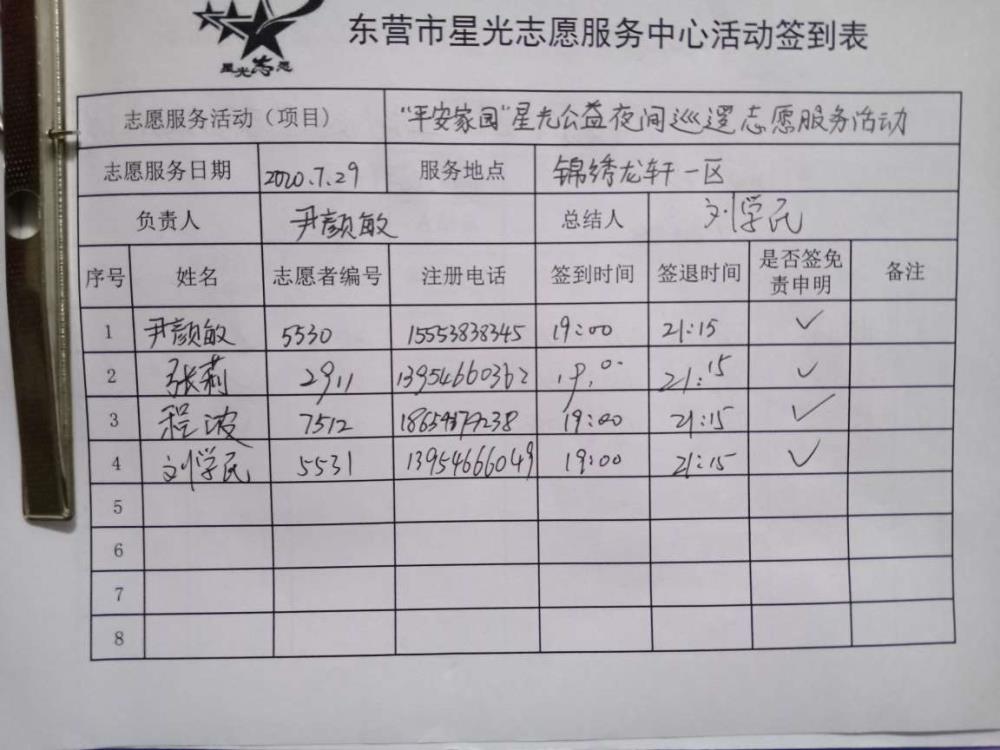 星光志愿
东营市星光志愿服务中心活动签到表
志愿服务活动（项目） “平安家园”星光公益夜间巡逻志愿服务活动
志愿服务日期 2020.7.29 服务地点 锦绣龙轩一区
负责人 尹颜敏 总结人 刘学民
序号 姓名 志愿者编号 注册电话 签到时间 签退时间 是否签免责申明 备注
1 尹颜敏 5530 15553838345 19:00 21:15 ✓
2 张莉 2911 13954660362 19:00 21:15 ✓
3 程波 7512 19:00 21:15 ✓
4 刘学民 5531 13954666049 19:00 21:15 ✓
5
6
7
8